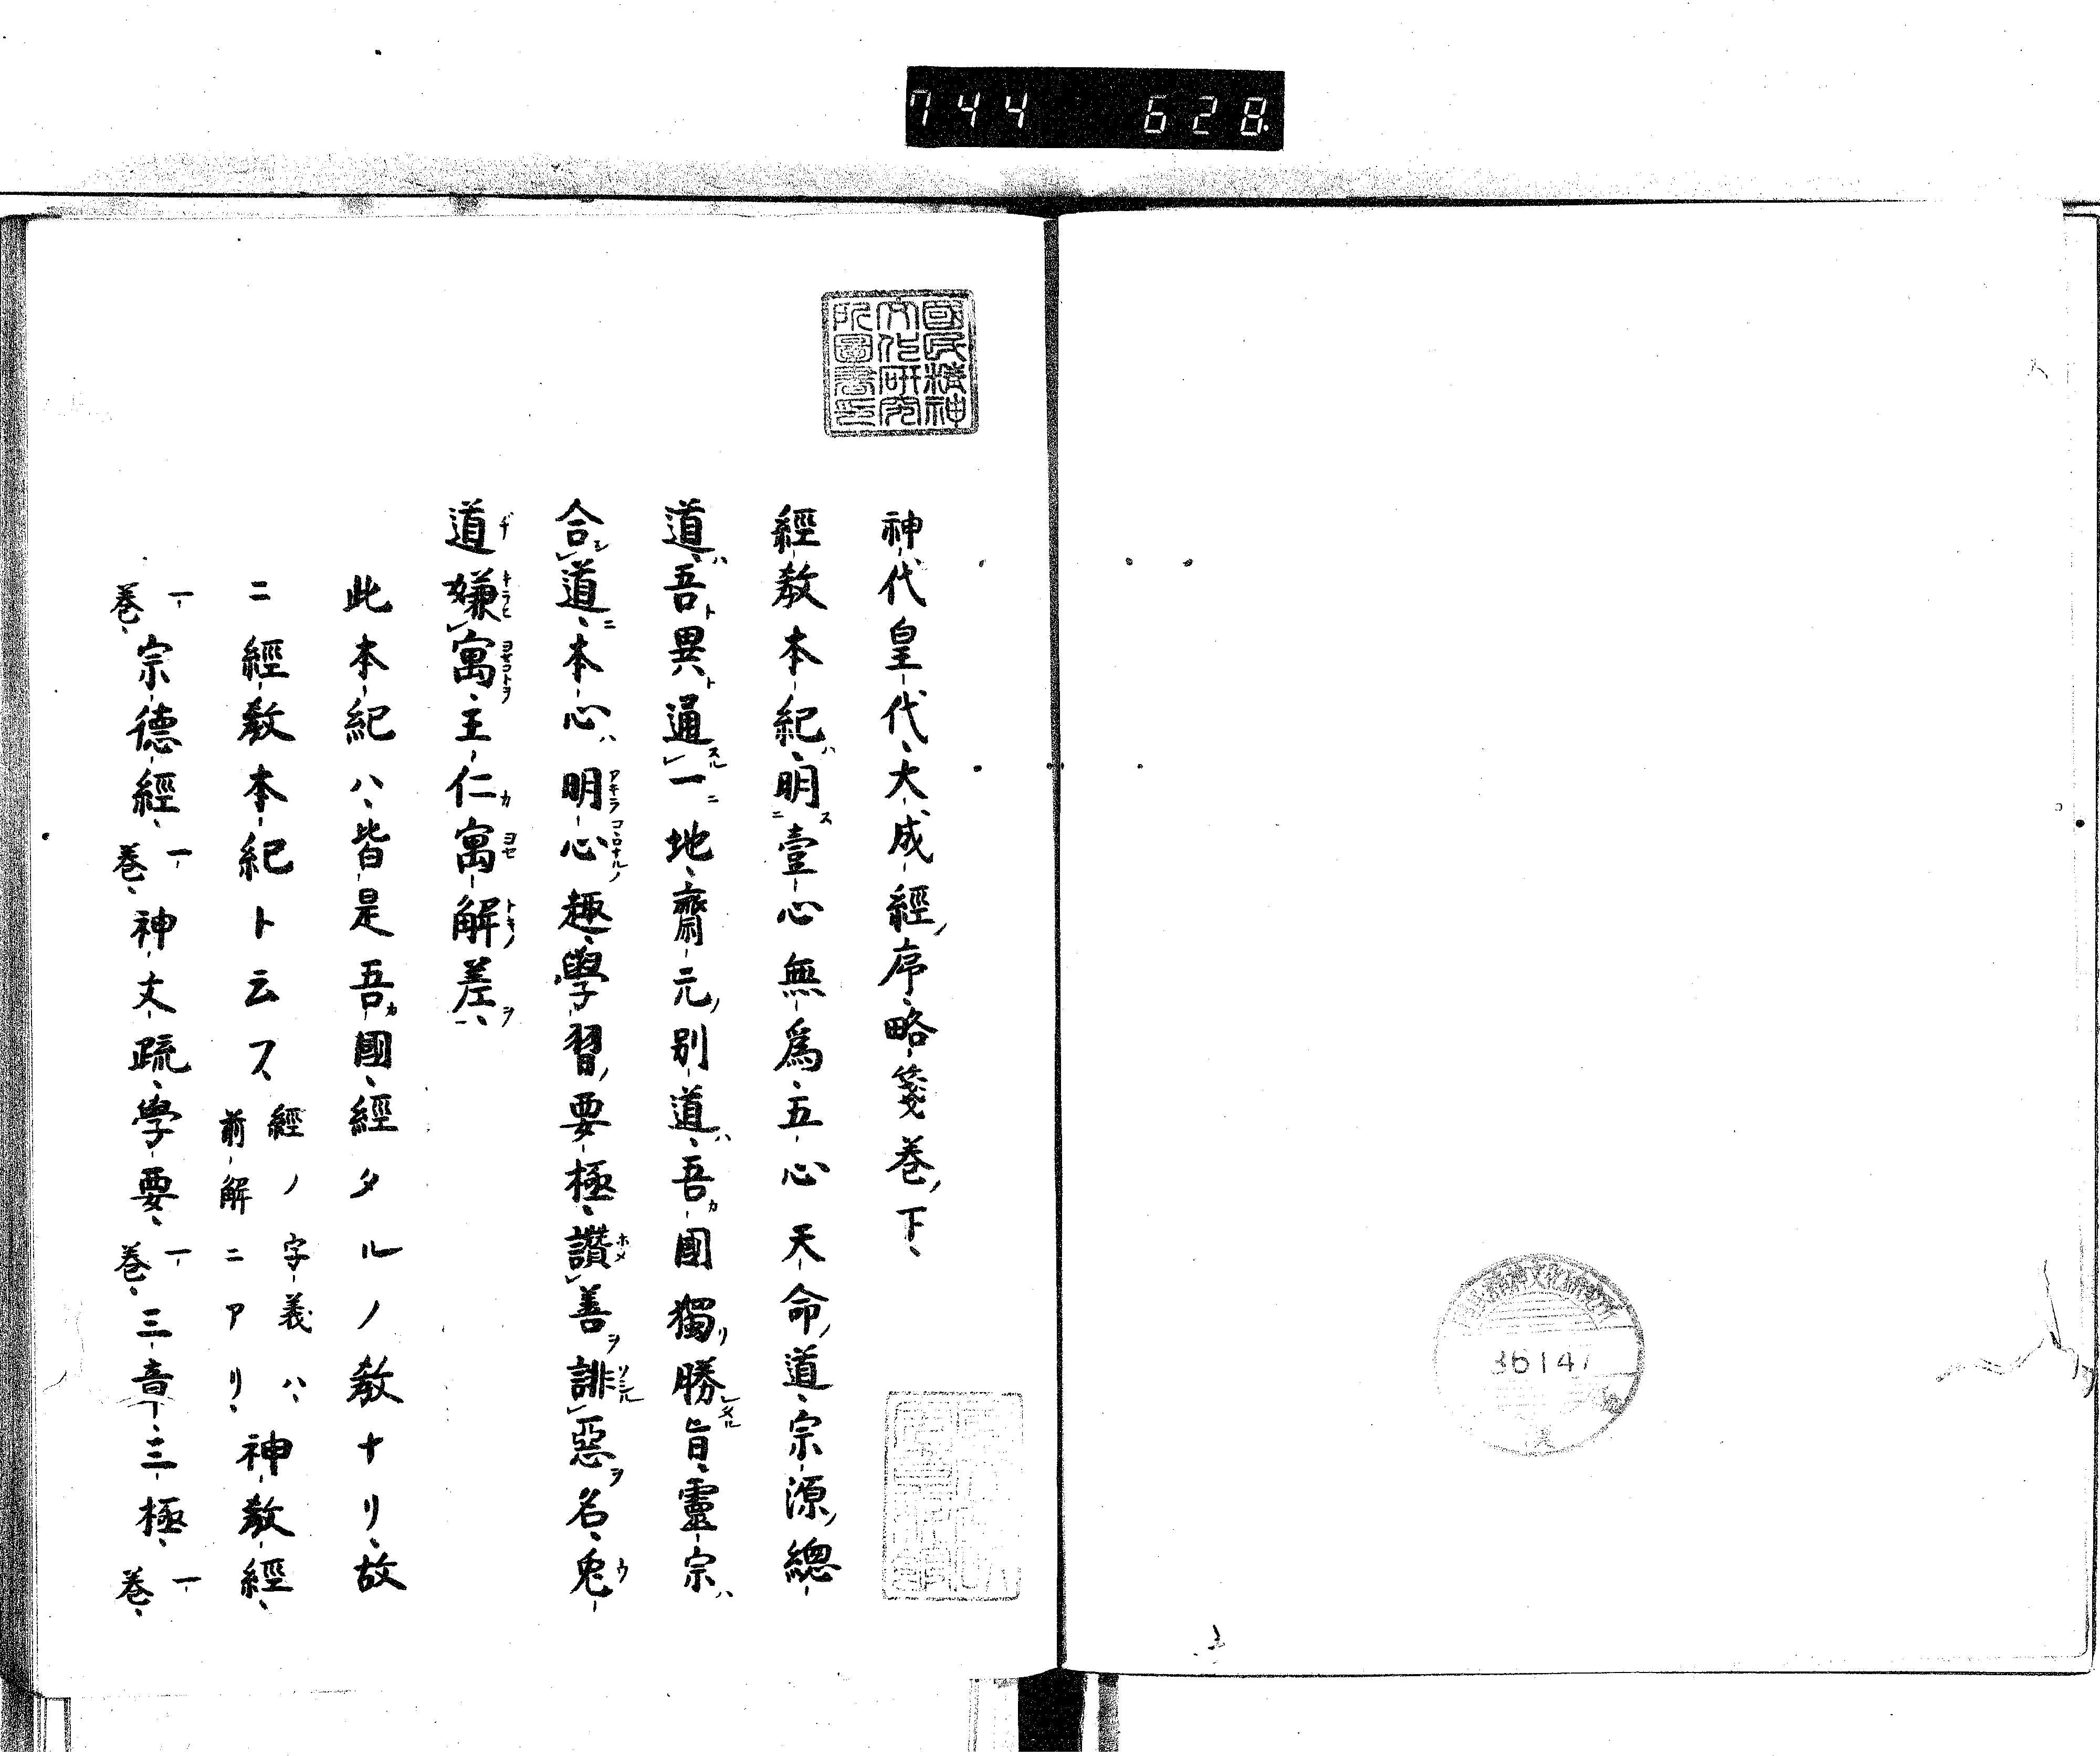 744 628.
國民精神
文化研究
所圖書印
神代皇代大成經序略箋巻下
經教本紀ハ明ニス壹心無爲五心天命道宗源總
道ハ吾ト異ト通スル一ニ地齋元ノ別道ハ吾カ國獨リ勝レタル旨靈宗ハ
合レ道ニ本心ハ明心趣學習ノ要極讃善ヲ誹惡ヲ名兎
道嫌寓主仁カ寓解差ヲ
此本紀ハ皆是吾カ國經タルノ教ナリ故
ニ經教本紀ト云フ經ノ字義ハ前解ニアリ神教經
一巻宗德經一巻神文疏學要一巻三章三極一巻
36147